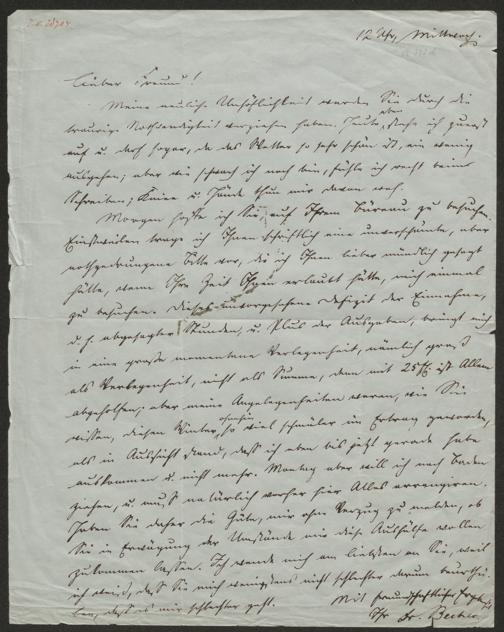 12 Uhr, Mittwoch.
Lieber Freund!
Meine neuliche Unhöflichkeit werden Sie durch die
traurige Nothwendigkeit verziehen haben. Heute eben stehe ich zuerst
auf u. darf sogar, da das Wetter so sehr schön ist, ein wenig
ausgehen; aber wie schwach ich noch bin, fühle ich recht beim
Schreiben; Kniee u. Hände thun mir davon weh.
Morgen hoffe ich Sie auf Ihrem Büreau zu besuchen.
Einstweilen trage ich Ihnen schriftlich eine unverschämte, aber
nothgedrungene Bitte vor, die ich Ihnen lieber mündlich gesagt
hätte, wenn Ihre Zeit Ihnen erlaubt hätte, mich einmal
zu besuchen. Dieses unvorgesehene Defizit der Einnahme,
d. h. abgesagter Stunden, u. Plus der Ausgaben, bringt mich
in eine große momentane Verlegenheit, nämlich groß
als Verlegenheit, nicht als Summe, denn mit 25 fl. ist Allem
abgeholfen; aber meine Angelegenheiten waren, wie Sie
wissen, diesen Winter ohnehin so viel schmäler im Ertrag geworden,
als in Aussicht stand, daß ich eben bis jetzt gerade habe
auskommen u. nicht mehr. Montag aber will ich nach Baden
ziehen, u. muß natürlich vorher hier Alles arrangiren.
Haben Sie daher die Güte, mir ohne Verzug zu melden, ob
Sie in Erwägung der Umstände mir diese Aushülfe wollen
zukommen lassen. Ich wende mich am liebsten an Sie, weil
ich weiß, daß Sie mich wenigstens nicht schlechter darum beurthei-
len, daß es mir schlechter geht. Mit freundschaftlicher
Ihr Dr. Becher